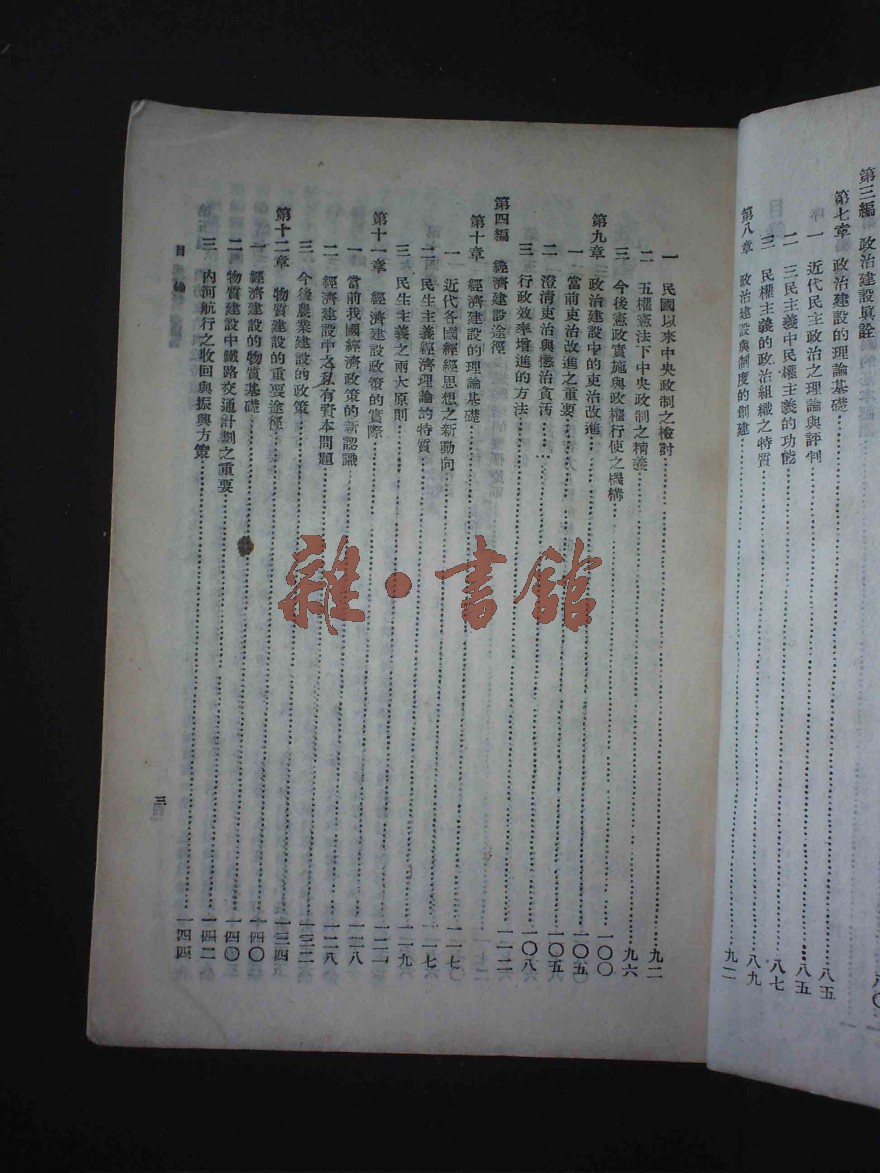 第三編 政治建設真詮
第七章 政治建設的理論基礎……八五
一 近代民主政治之理論與評判……八五
二 三民主義中民權主義的功能……八七
三 民權主義的政治組織之特質……八九
第八章 政治建設與制度的創建……九二
一 民國以來中央政制之檢討……九二
二 五權憲法下中央政制之精義……九六
三 今後憲政實施與政權行使之機構……一〇〇
第九章 政治建設中的吏治改進……一〇五
一 當前吏治改進之重要……一〇五
二 澄清吏治與懲治貪汚……一〇八
三 行政效率增進的方法……一一二
第四編 經濟建設途徑
第十章 經濟建設的理論基礎……一一七
一 近代各國經經思想之新動向……一一七
二 民生主義經濟理論的特質……一一九
三 民生主義之兩大原則……一二二
第十一章 經濟建設政策的實際……一二八
一 當前我國經濟政策的新認識……一二八
二 經濟建設中之私有資本問題……一三三
三 今後農業建設的政策……一三四
第十二章 物質建設的重要途徑……一四〇
一 經濟建設的物質基礎……一四〇
二 物質建設中鐵路交通計劃之重要……一四二
三 內河航行之收回與振興方策……一四四
目錄
三
雜·書館